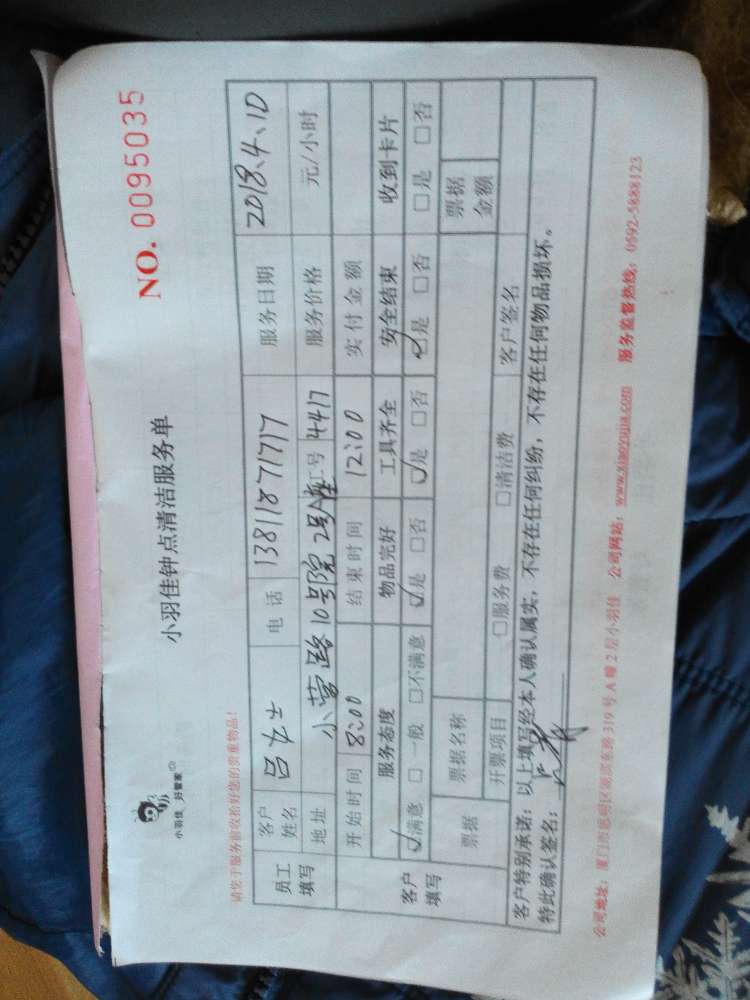 小羽佳 好管家
小羽佳钟点清洁服务单
NO. 0095035
请您于服务前收拾好您的贵重物品!
员工填写 客户姓名 吕女士 电话 13811871717 服务日期 2018.4.10
地址 小营路10号院2号 工号 4417 服务价格 元/小时
客户填写 开始时间 8:00 结束时间 12:00 实付金额
服务态度 物品完好 工具齐全 安全结束 收到卡片
☑满意 □一般 □不满意 ☑是 □否 ☑是 □否 ☑是 □否 □是 □否
票据 票据名称 票据金额
开票项目 □服务费 □清洁费 客户签名
客户特别承诺:以上填写经本人确认属实,不存在任何纠纷,不存在任何物品损坏。
特此确认签名:
公司地址:厦门市思明区湖滨东路319号A幢2层小羽佳 公司网站:www.xiaoyujia.com 服务监督热线:0592-5888123